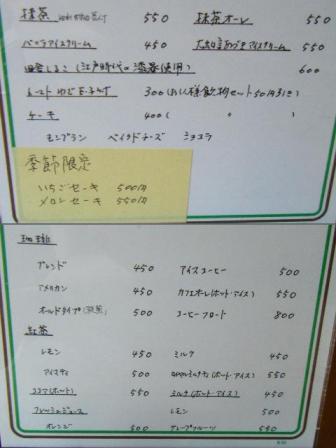 抹茶 550 抹茶オーレ 550
バニラアイスクリーム 450 アイスクリーム 550
田舎しるこ (江戸時代の漆器使用) 600
トースト 300
ケーキ 400
モンブラン ベイクドチーズ ショコラ
季節限定
いちごセーキ 500円
メロンセーキ 550円
珈琲
ブレンド 450 アイスコーヒー 500
アメリカン 450 カフェオーレ(ホット・アイス) 550
オールドタイプ 500 コーヒーフロート 800
紅茶
レモン 450 ミルク 450
アイスティ 500 ミルクティ(ホット・アイス) 550
ココア(ホット) 550 ミルク(ホット・アイス) 450
フレッシュジュース レモン 500
オレンジ 500 グレープフルーツ 550